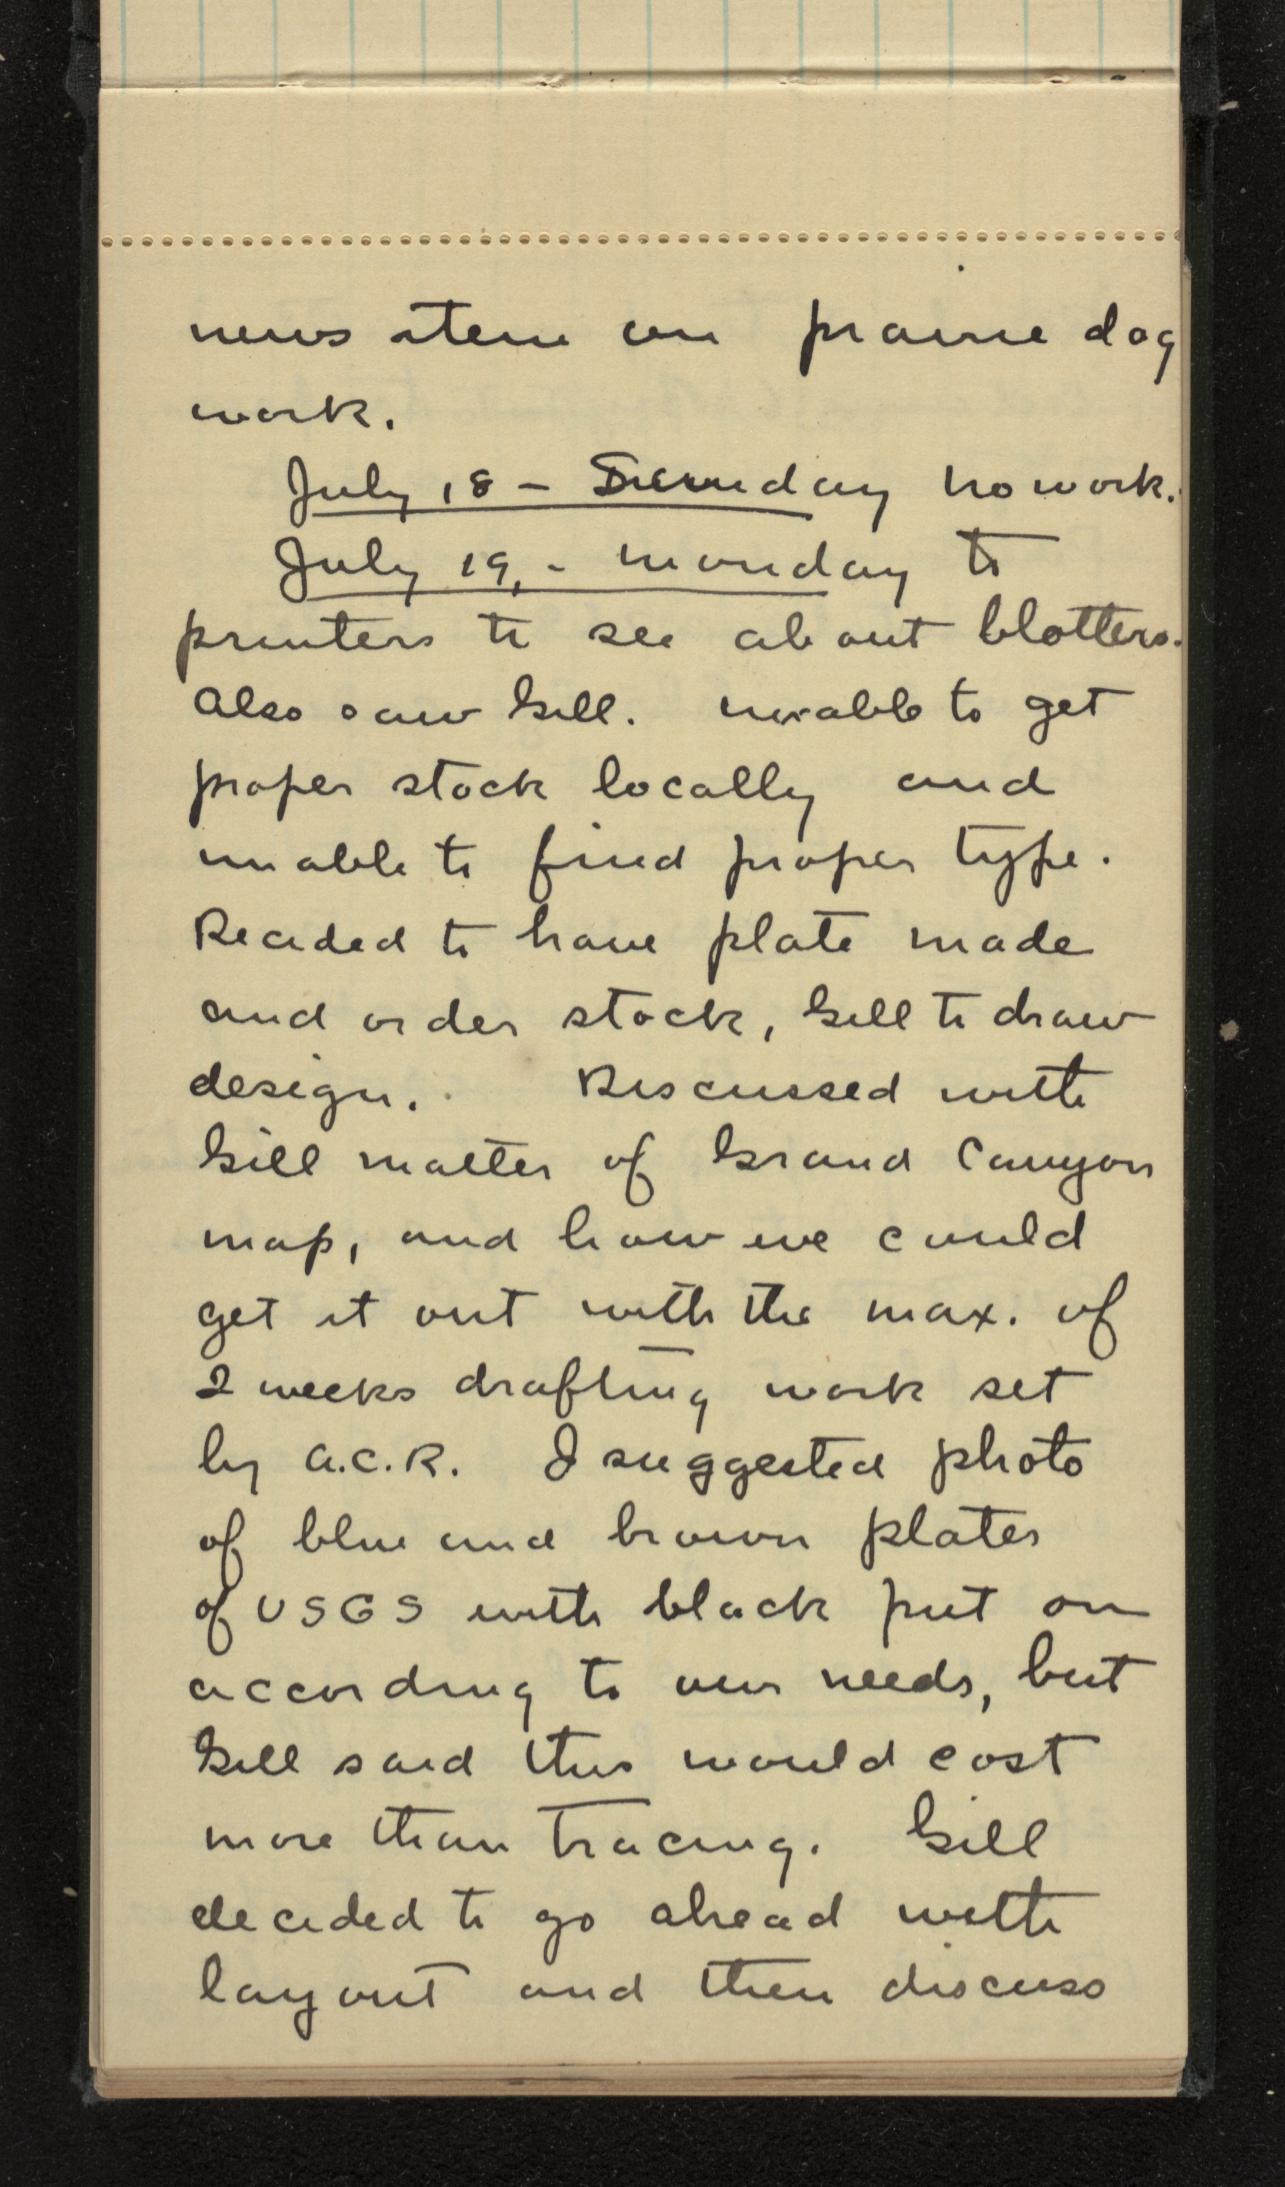 news item on prairie dog
work.
July 18 - Sunday no work.
July 19, - Monday to
printers to see about blotters.
Also saw Gill. Unable to get
proper stock locally and
unable to find proper type.
Decided to have plate made
and order stock, Gill to draw
design. Discussed with
Gill matter of Grand Canyon
map, and how we could
get it out with the max. of
2 weeks drafting work set
by A.C.R. I suggested photo
of blue and brown plates
of USGS with black put on
according to our needs, but
Gill said this would cost
more than tracing. Gill
decided to go ahead with
layout and then discuss